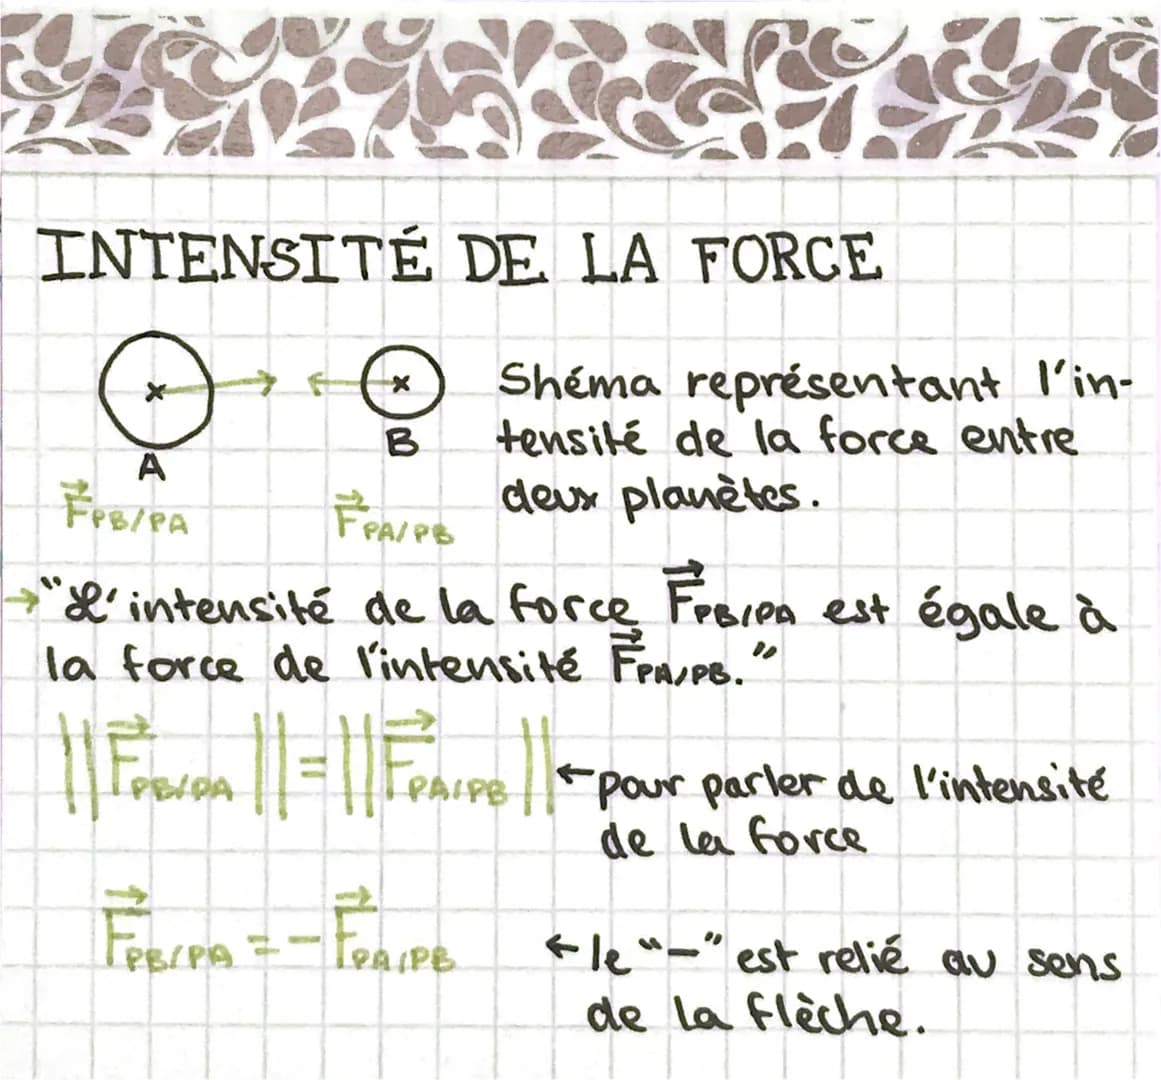 INTENSITÉ DE LA FORCE
A
B
F⃗PB/PA
F⃗PA/PB
Shéma représentant l'in-
tensité de la force entre
deux planètes.
→"L'intensité de la force F⃗PB/PA est égale à
la force de l'intensité F⃗PA/PB."
||F⃗PB/PA|| = ||F⃗PA/PB|| ← pour parler de l'intensité
de la force
F⃗PB/PA = - F⃗PA/PB ← le "-" est relié au sens
de la flèche.